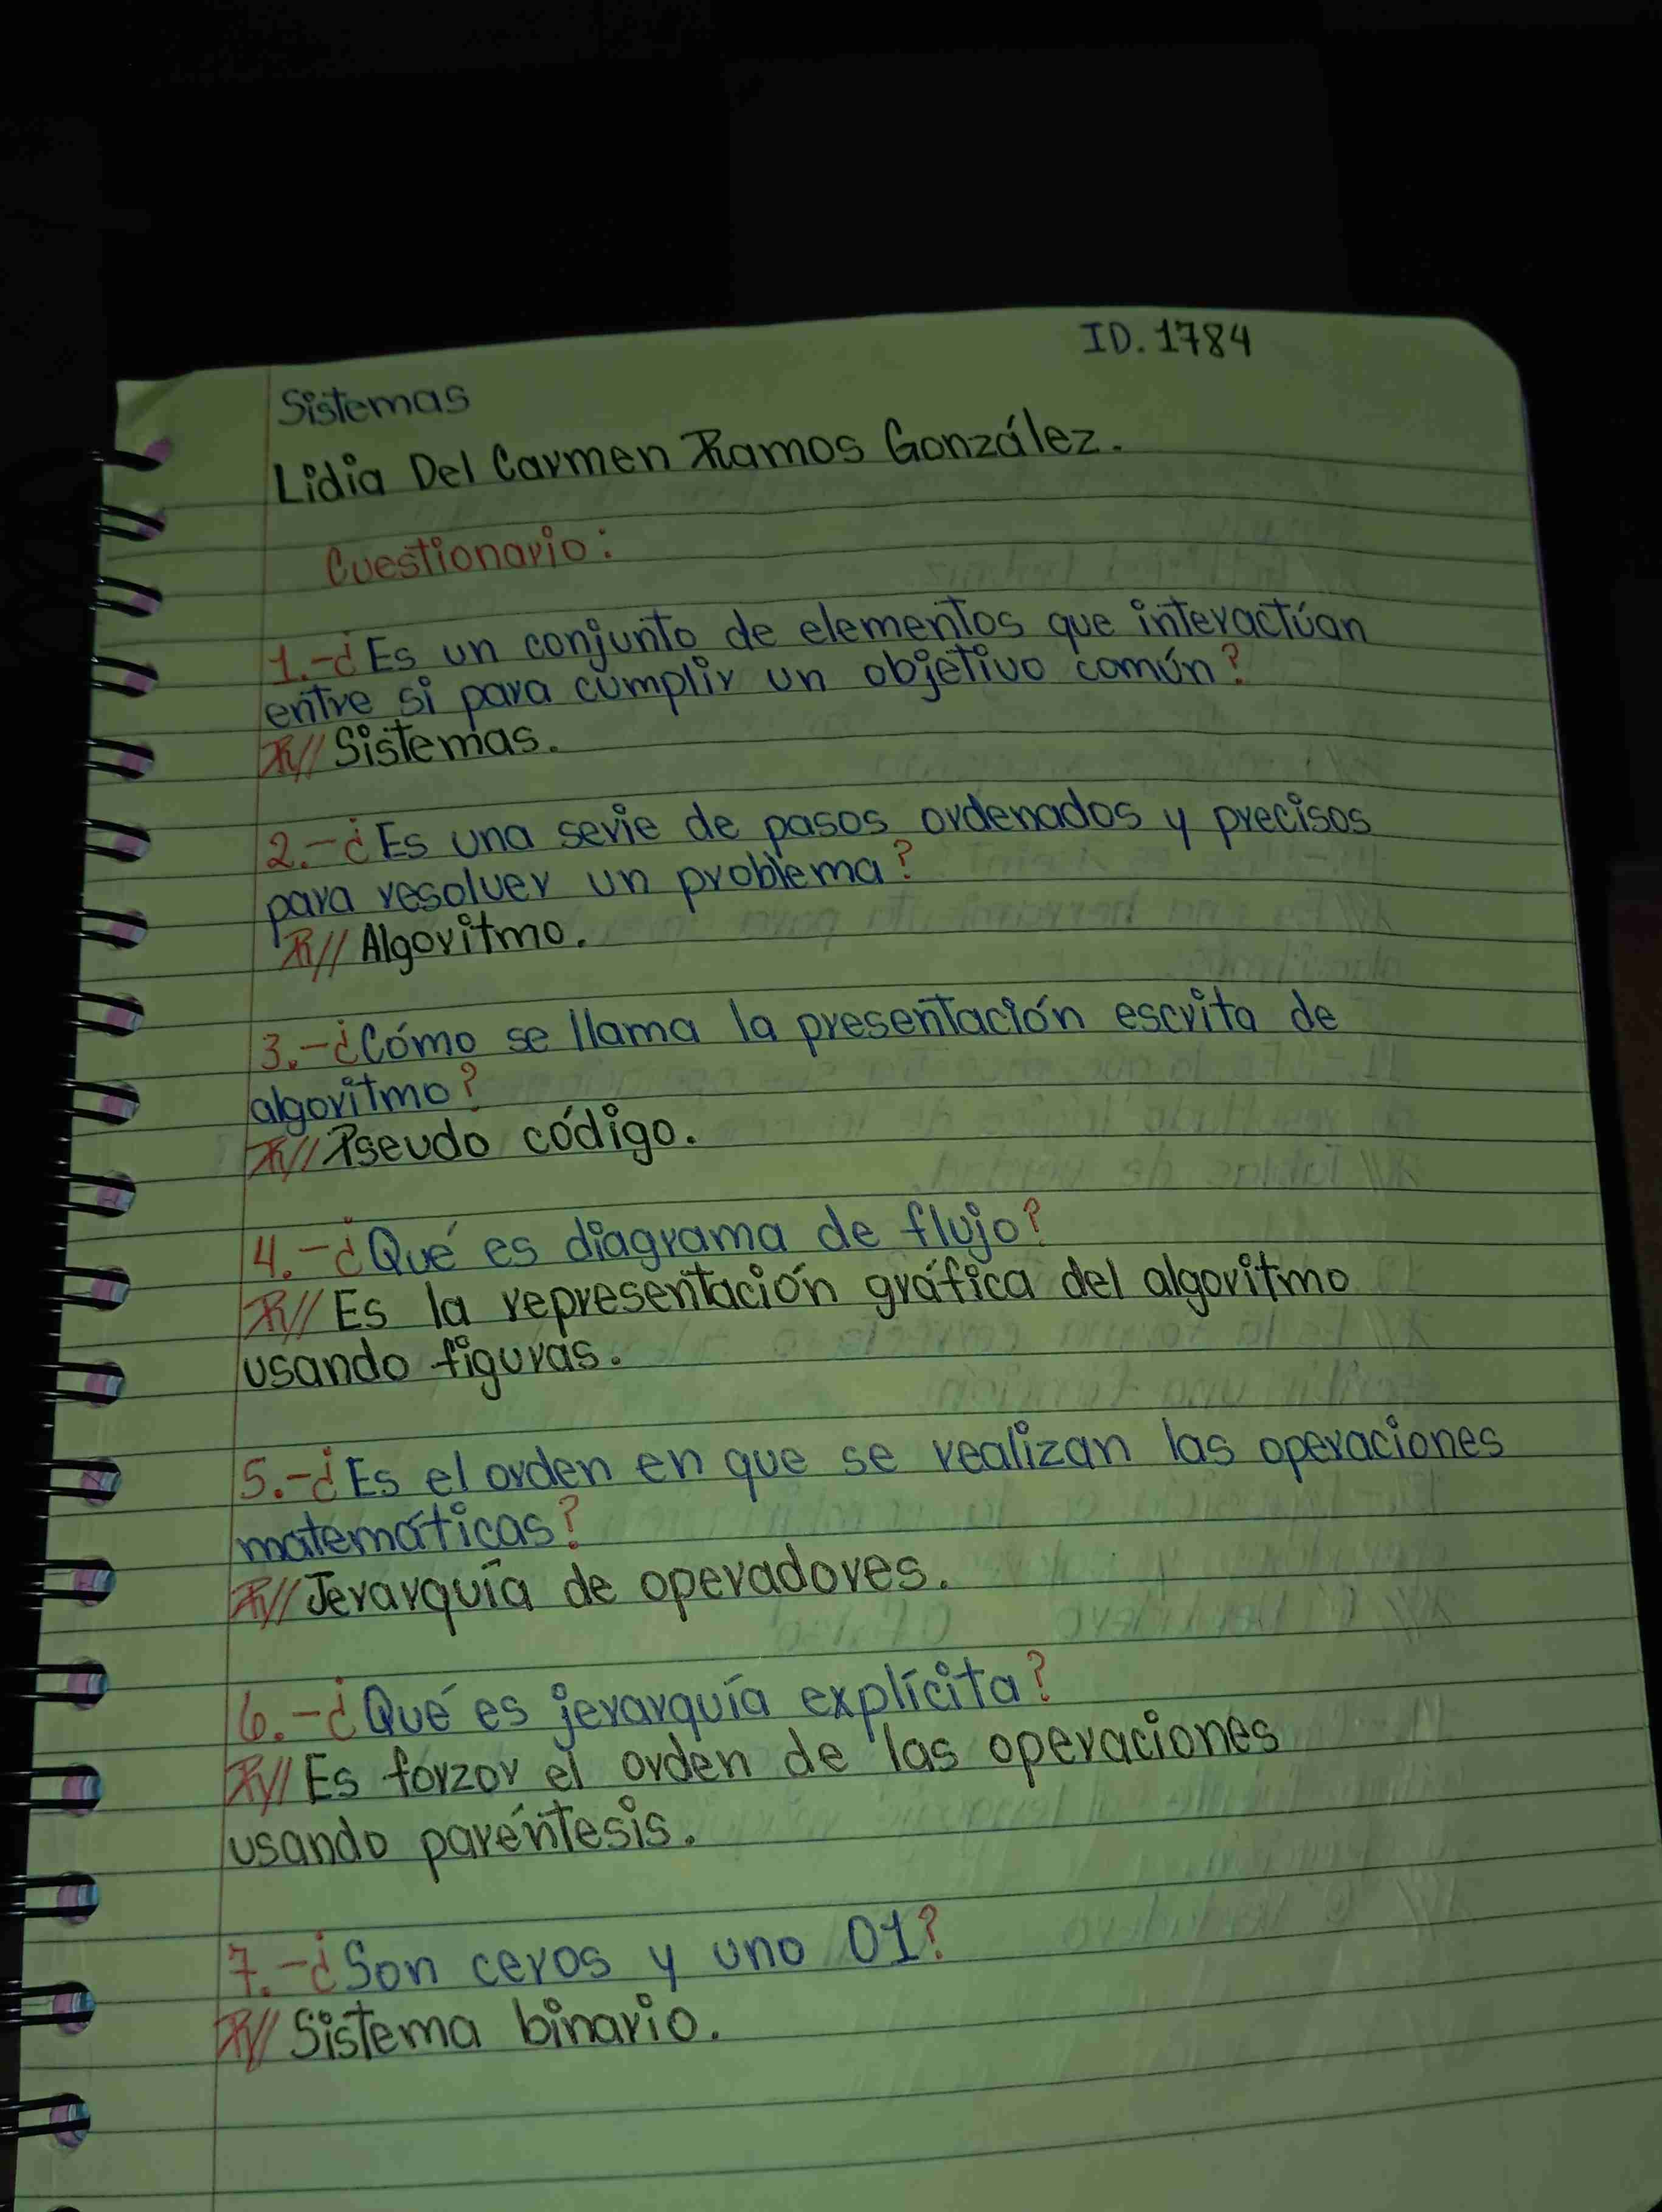 ID. 1784
Sistemas
Lidia Del Carmen Ramos González.
Cuestionario:
1.-¿Es un conjunto de elementos que interactúan
entre si para cumplir un objetivo común?
R// Sistemas.
2.-¿Es una serie de pasos ordenados y precisos
para resolver un problema?
R// Algoritmo.
3.-¿Cómo se llama la presentación escrita de
algoritmo?
R// Pseudo código.
4.-¿Qué es diagrama de flujo?
R// Es la representación gráfica del algoritmo
usando figuras.
5.-¿Es el orden en que se realizan las operaciones
matemáticas?
R// Jerarquía de operadores.
6.-¿Qué es jerarquía explícita?
R// Es forzar el orden de las operaciones
usando paréntesis.
7.-¿Son ceros y uno 01?
R// Sistema binario.